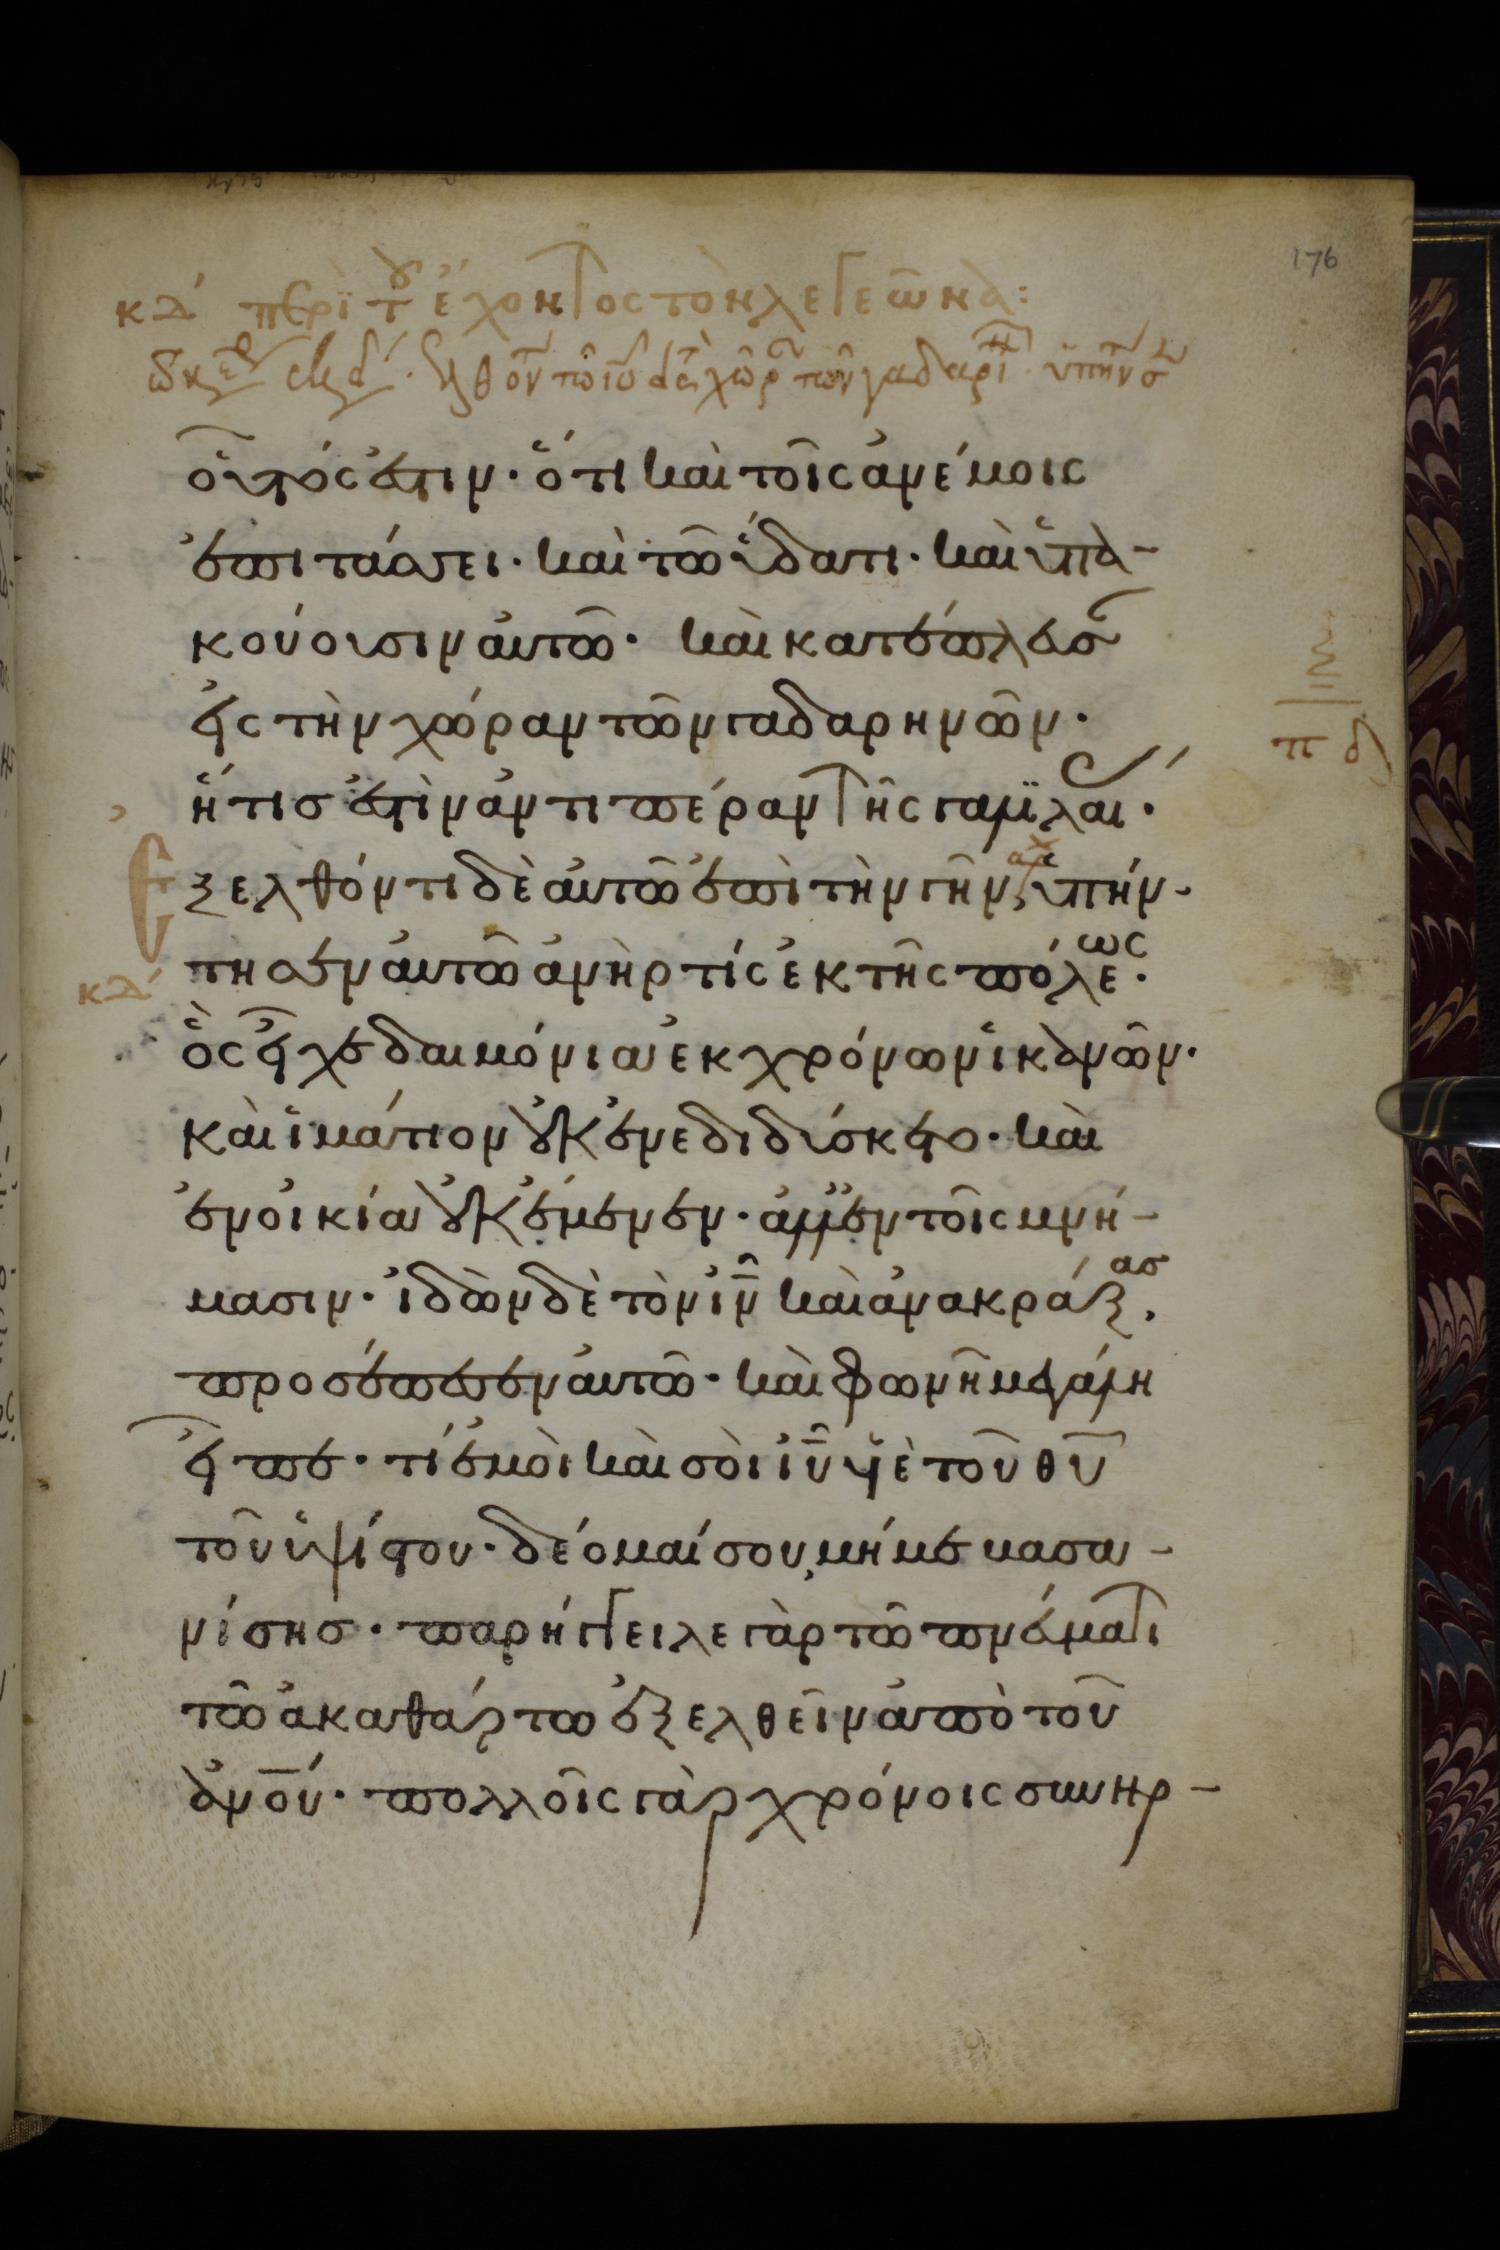 176
κδ περὶ τοῦ ἔχοντος τὸν λεγεῶνα:
οὗτός ἐστιν· ὅτι καὶ τοῖς ἀνέμοις
ἐπιτάσσει· καὶ τῶ ὕδατι· καὶ ὑπα-
κούουσιν αὐτῶ· καὶ κατέπλευσεν
εἰς τὴν χώραν τῶν γαδαρηνῶν·
ἥτις ἐστὶν ἀντιπέραν τῆς γαλιλαί·
Ἐξελθόντι δὲ αὐτῶ ἐπὶ τὴν γῆν ὑπήν-
κδ
τησεν αὐτῶ ἀνὴρ τίς ἐκ τῆς πόλεως·
ὃς εἶχε δαιμόνια ἐκ χρόνων ἱκανῶν·
καὶ ἱμάτιον οὐκ ἐνεδιδύσκετο· καὶ
ἐν οἰκία οὐκ ἔμενεν· ἀλλ' ἐν τοῖς μνή-
μασιν· ἰδὼν δὲ τὸν ιν καὶ ἀνακράξας,
προσέπεσεν αὐτῶ· καὶ φωνῆ μεγάλη
εἶπε· τί ἐμοὶ καὶ σοὶ ιυ υἱὲ τοῦ θυ
τοῦ ὑψίστου· δέομαί σου, μή με βασα-
νίσης· παρήγγειλε γὰρ τῶ πνεύματι
τῶ ἀκαθάρτω ἐξελθεῖν ἀπὸ τοῦ
ανου· πολλοῖς γὰρ χρόνοις συνηρ-